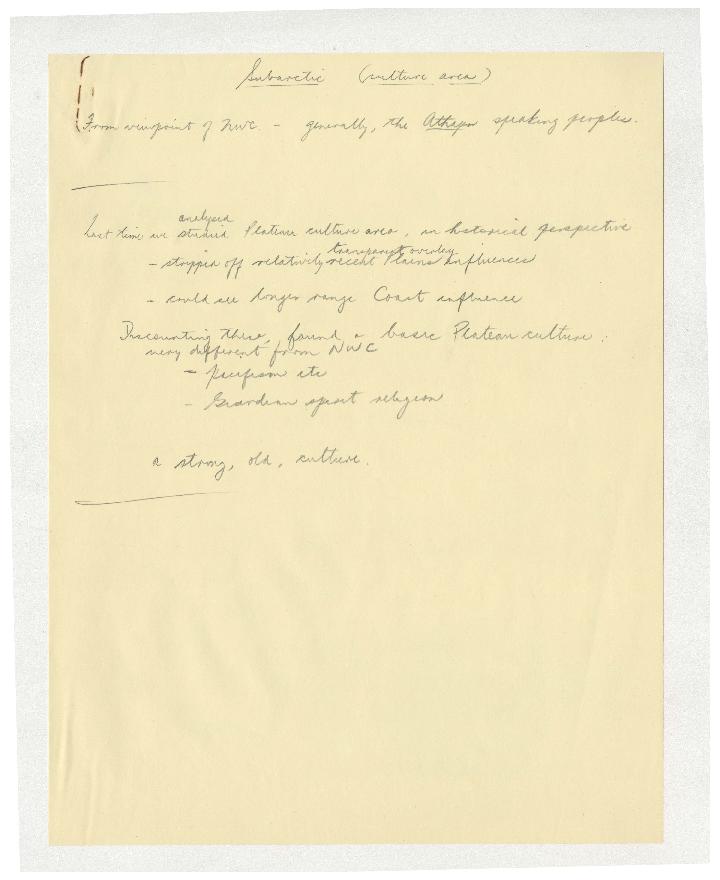 Subarctic (culture area)
From viewpoint of NWC. - generally, the Athapn speaking peoples.
analysed
Last time we studied Plateau culture area, in historical perspective
transparent overlay
- stripped off relatively recent Plains influences
- could see longer range Coast influence
Discounting these, found a basic Plateau culture:
very different from NWC
- pacifism etc
- Guardian spirit religion
a strong, old, culture.